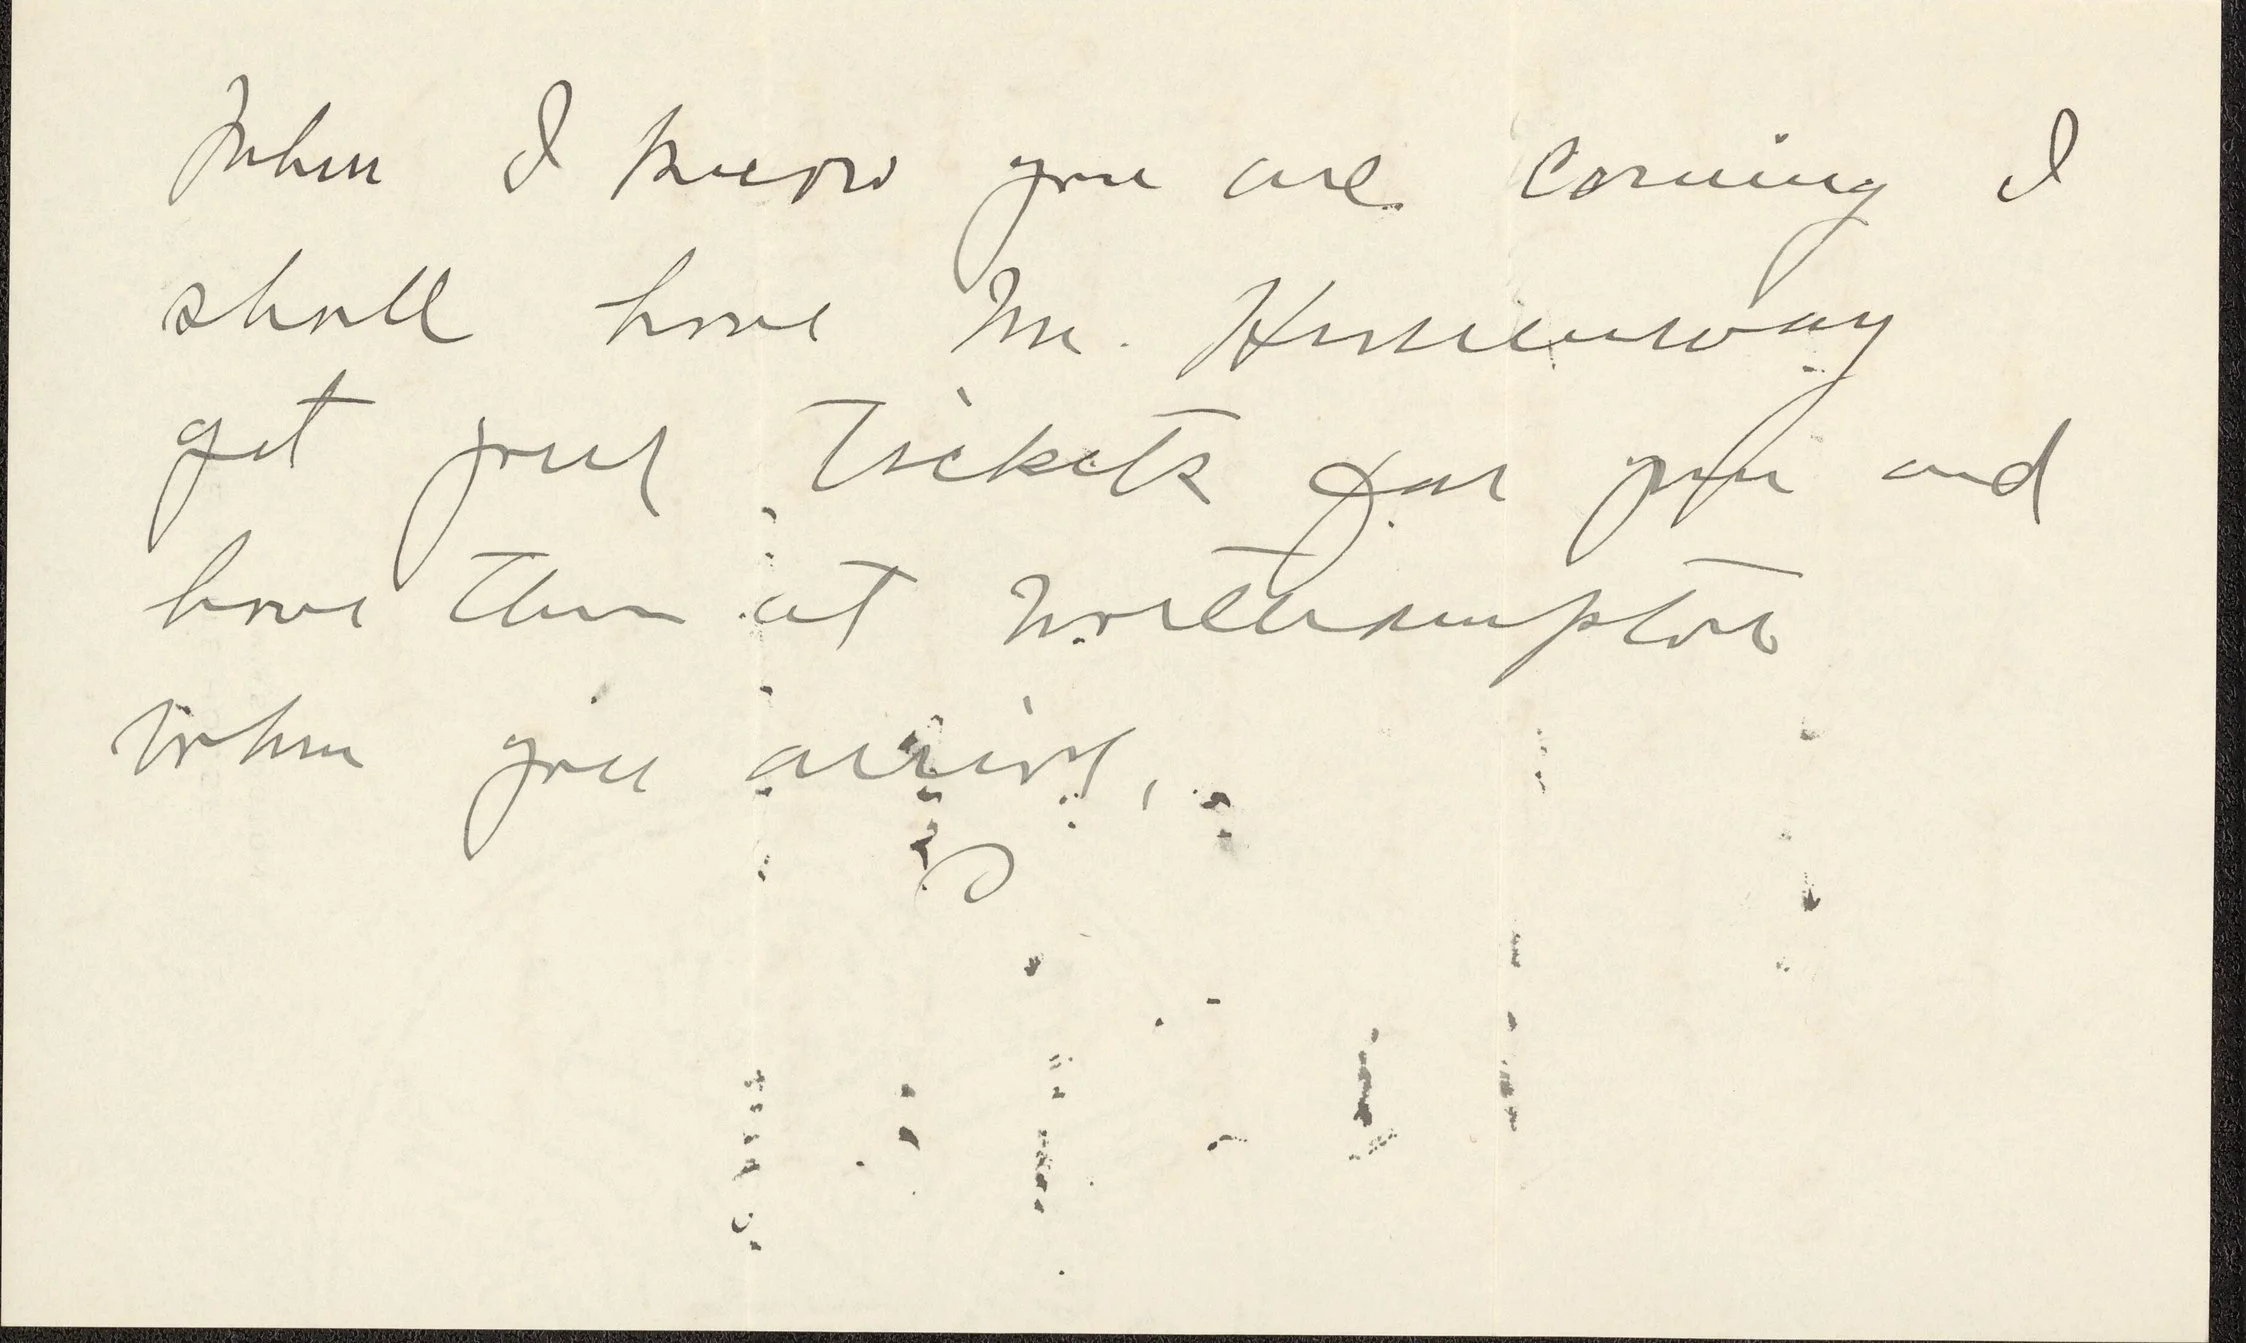 When I know you are coming I
shall have Mr. Hemenway
get your tickets for you and
have them at Northampton
when you arrive,